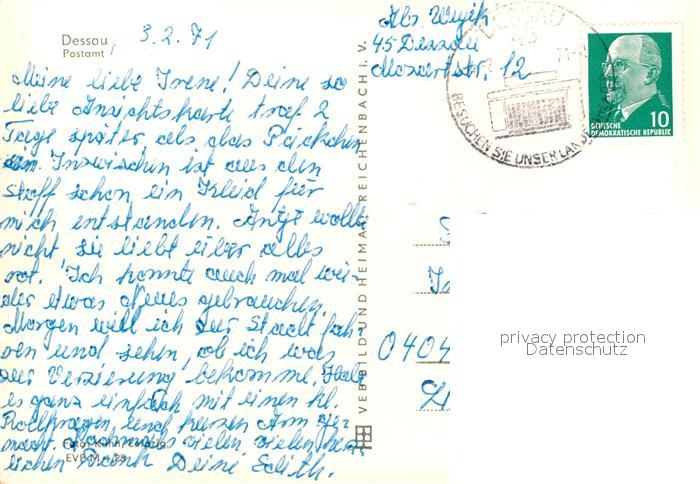 Dessau
Postamt
3.2.71
Meine liebe Irene! Deine so
liebe Ansichtskarte traf 2
Tage später, als das Päckchen
ein. Inzwischen ist aus den
Stoff schon ein Kleid für
mich entstanden. Antje wollte
nicht sie liebt über alles
rot. Ich konnte auch mal wie-
der etwas Neues gebrauchen.
Morgen will ich zur Stadt fah-
ren und sehen, ob ich was
zur Verzierung bekomme. Habe
es ganz einfach mit einen kl.
Rollkragen und kurzen Arm ge-
macht. Nochmals vielen vielen herz-
lichen Dank Deine Edith.
Foto: Kühn,
VEB BILD UND HEIMAT REICHENBACH i. V.
Abs.
45 Dessau
Mozartstr. 12
DESSAU
45
BESUCHEN SIE UNSER
10
DEUTSCHE
DEMOKRATISCHE REPUBLIK
0404
privacy protection
Datenschutz